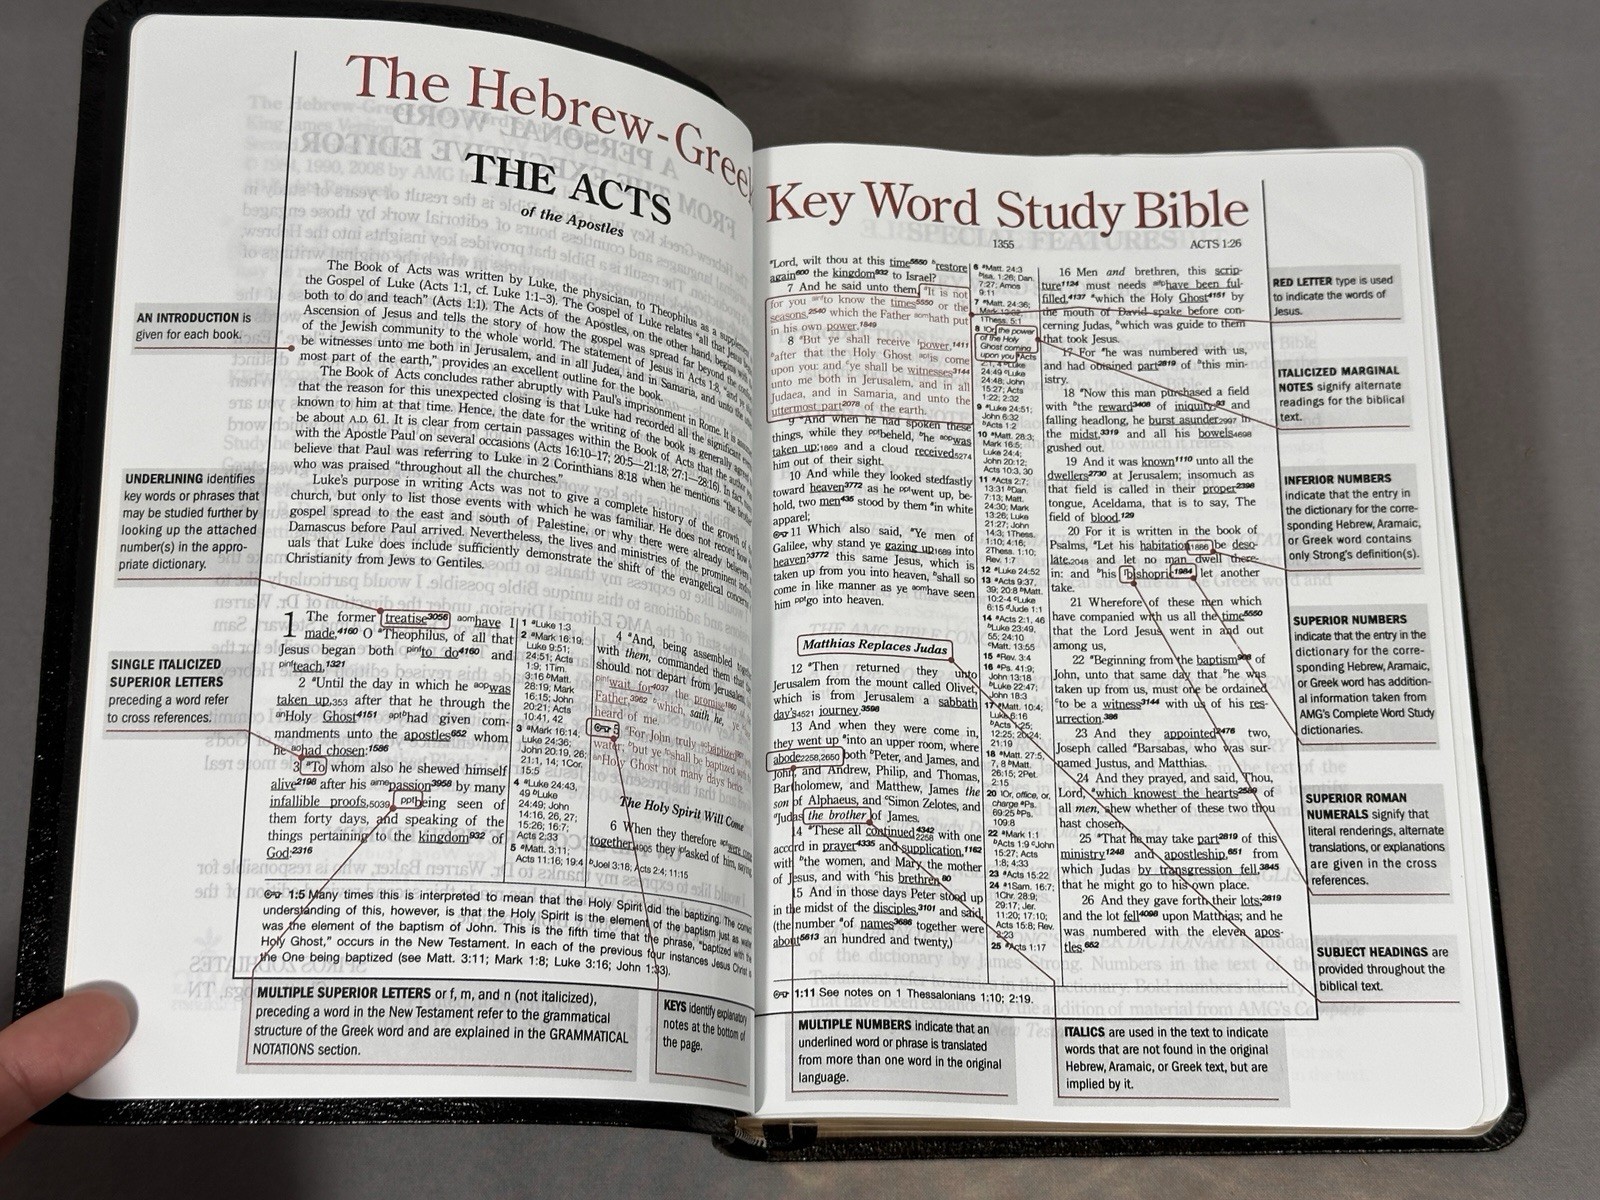 The Hebrew-Greek
THE ACTS
of the Apostles
AN INTRODUCTION is
given for each book.
UNDERLINING identifies
key words or phrases that
may be studied further by
looking up the attached
number(s) in the appro-
priate dictionary.
SINGLE ITALICIZED
SUPERIOR LETTERS
preceding a word refer
to cross references.
The Book of Acts was written by Luke, the physician, to Theophilus as a
the Gospel of Luke (Acts 1:1, cf. Luke 1:1–3). The Gospel of Luke relates "all that Jesus
both to do and teach" (Acts 1:1). The Acts of the Apostles, on the other hand, begins with
Ascension of Jesus and tells the story of how the gospel was spread far beyond the
of the Jewish community to the whole world. The statement of Jesus in Acts 1:8, "and
be witnesses unto me both in Jerusalem, and in all Judea, and in Samaria, and unto the
most part of the earth," provides an excellent outline for the book.
The Book of Acts concludes rather abruptly with Paul's imprisonment in Rome. It is
that the reason for this unexpected closing is that Luke had recorded all the significant
known to him at that time. Hence, the date for the writing of the book is generally
be about A.D. 61. It is clear from certain passages within the Book of Acts that the
with the Apostle Paul on several occasions (Acts 16:10–17; 20:5—21:18; 27:1—28:16). In fact,
believe that Paul was referring to Luke in 2 Corinthians 8:18 when he mentions "the
who was praised "throughout all the churches."
Luke's purpose in writing Acts was not to give a complete history of the growth of
church, but only to list those events with which he was familiar. He does not record how
gospel spread to the east and south of Palestine, or why there were already believers
Damascus before Paul arrived. Nevertheless, the lives and ministries of the prominent
uals that Luke does include sufficiently demonstrate the shift of the evangelical concerns
Christianity from Jews to Gentiles.
1 The former treatise3056 aomhave I
made,4160 O aTheophilus, of all that
Jesus began both pinfto do4160 and
pinfteach,1321
2 aUntil the day in which he aopwas
taken up,353 after that he through the
anHoly Ghost4151 aptbhad given com-
mandments unto the apostles652 whom
he aohad chosen:1586
3 aTo whom also he shewed himself
alive2198 after his ampassion3958 by many
infallible proofs,5039 pptbeing seen of
them forty days, and speaking of the
things pertaining to the kingdom932 of
God:2316
1 aLuke 1:3
2 aMark 16:19;
Luke 9:51;
24:51; Acts
1:9; 1Tim.
3:16 bMatt.
28:19; Mark
16:15; John
20:21; Acts
10:41, 42
3 aMark 16:14;
Luke 24:36;
John 20:19, 26;
21:1, 14; 1Cor.
15:5
4 aLuke 24:43,
49 bLuke
24:49; John
14:16, 26, 27;
15:26; 16:7;
Acts 2:33
5 aMatt. 3:11;
Acts 11:16; 19:4
bJoel 3:18; Acts 2:4; 11:15
4 aAnd, being assembled
with them, commanded them
should not depart from Jerusalem,
pinfwait for4037 the promise1860
Father,3962 bwhich, saith he,
heard of me.
5 aFor John truly baptized
water; bbut ye shall be baptized
anHoly Ghost not many days
The Holy Spirit Will Come
6 When they therefore
together4905 they asked of him, saying,
1:5 Many times this is interpreted to mean that the Holy Spirit did the baptizing. The correct
understanding of this, however, is that the Holy Spirit is the element of the baptism just as water
was the element of the baptism of John. This is the fifth time that the phrase, "baptized with
Holy Ghost," occurs in the New Testament. In each of the previous four instances Jesus Christ is
the One being baptized (see Matt. 3:11; Mark 1:8; Luke 3:16; John 1:33).
MULTIPLE SUPERIOR LETTERS or f, m, and n (not italicized),
preceding a word in the New Testament refer to the grammatical
structure of the Greek word and are explained in the GRAMMATICAL
NOTATIONS section.
KEYS identify explanatory
notes at the bottom of
the page.
Key Word Study Bible
1355 ACTS 1:26
aLord, wilt thou at this time5550 brestore
again600 the kingdom932 to Israel?
7 And he said unto them, aIt is not
for you to know the times5550 or the
seasons,2540 which the Father aomhath put
in his own power.1849
8 aBut ye shall receive power,1411
after that the Holy Ghost is come
upon you: and cye shall be witnesses3144
unto me both in Jerusalem, and in all
Judaea, and in Samaria, and unto the
uttermost part2078 of the earth.
9 aAnd when he had spoken these
things, while they pptbeheld, bhe aopwas
taken up;1869 and a cloud received5274
him out of their sight.
10 And while they looked stedfastly
toward heaven3772 as he pptwent up, be-
hold, two men435 stood by them ain white
apparel;
11 Which also said, aYe men of
Galilee, why stand ye gazing up1689 into
heaven?3772 this same Jesus, which is
taken up from you into heaven, bshall so
come in like manner as ye aomhave seen
him pptgo into heaven.
Matthias Replaces Judas
12 aThen returned they unto
Jerusalem from the mount called Olivet,
which is from Jerusalem a sabbath
day's4521 journey.3598
13 And when they were come in,
they went up ainto an upper room, where
abode2258,2650 both bPeter, and James, and
John, and Andrew, Philip, and Thomas,
Bartholomew, and Matthew, James the
son of Alphaeus, and cSimon Zelotes, and
dJudas the brother of James.
14 aThese all continued4342 2258 with one
accord in prayer4335 and supplication,1162
with bthe women, and Mary the mother
of Jesus, and with chis brethren.80
15 And in those days Peter stood up
in the midst of the disciples,3101 and said,
(the number aof names3686 together were
about5613 an hundred and twenty,)
6 aMatt. 24:3
bIsa. 1:26; Dan.
7:27; Amos
9:11
7 aMatt. 24:36;
Mark 13:32;
1Thess. 5:1
8 1Or, the power
of the Holy
Ghost coming
upon you aActs
2:1, 4 bLuke
24:49 cLuke
24:48; John
15:27; Acts
1:22; 2:32
9 aLuke 24:51;
John 6:62
bActs 1:2
10 aMatt. 28:3;
Mark 16:5;
Luke 24:4;
John 20:12;
Acts 10:3, 30
11 aActs 2:7;
13:31 bDan.
7:13; Matt.
24:30; Mark
13:26; Luke
21:27; John
14:3; 1Thess.
1:10; 4:16;
2Thess. 1:10;
Rev. 1:7
12 aLuke 24:52
13 aActs 9:37,
39; 20:8 bMatt.
10:2-4 cLuke
6:15 dJude 1:1
14 aActs 2:1, 46
bLuke 23:49,
55; 24:10
cMatt. 13:55
15 aRev. 3:4
16 aPs. 41:9;
John 13:18
bLuke 22:47;
John 18:3
17 aMatt. 10:4;
Luke 6:16
bActs 1:25;
12:25; 20:24;
21:19
18 aMatt. 27:5,
7, 8 bMatt.
26:15; 2Pet.
2:15
20 1Or, office, or,
charge aPs.
69:25 bPs.
109:8
22 aMark 1:1
bActs 1:9 cJohn
15:27; Acts
1:8; 4:33
23 aActs 15:22
24 a1Sam. 16:7;
1Chr. 28:9;
29:17; Jer.
11:20; 17:10;
Acts 15:8; Rev.
2:23
25 aActs 1:17
16 Men and brethren, this scrip-
ture1124 must needs have been ful-
filled,4137 awhich the Holy Ghost4151 by
the mouth of David spake before con-
cerning Judas, bwhich was guide to them
that took Jesus.
17 For ahe was numbered with us,
and had obtained part2819 of bthis min-
istry.
18 aNow this man purchased a field
with bthe reward3408 of iniquity;93 and
falling headlong, he burst asunder2997 in
the midst,3319 and all his bowels4698
gushed out.
19 And it was known1110 unto all the
dwellers2730 at Jerusalem; insomuch as
that field is called in their proper2398
tongue, Aceldama, that is to say, The
field of blood.129
20 For it is written in the book of
Psalms, aLet his habitation1886 be deso-
late,2048 and let no man dwell there-
in: and bhis 1bishoprick1984 let another
take.
21 Wherefore of these men which
have companied with us all the time5550
that the Lord Jesus went in and out
among us,
22 aBeginning from the baptism908 of
John, unto that same day that bhe was
taken up from us, must one be ordained
cto be a witness3144 with us of his res-
urrection.386
23 And they appointed2476 two,
Joseph called aBarsabas, who was sur-
named Justus, and Matthias.
24 And they prayed, and said, Thou,
Lord, awhich knowest the hearts2589 of
all men, shew whether of these two thou
hast chosen,
25 aThat he may take part2819 of this
ministry1248 and apostleship,651 from
which Judas by transgression fell,3845
that he might go to his own place.
26 And they gave forth their lots;2819
and the lot fell4098 upon Matthias; and he
was numbered with the eleven apos-
tles.652
1:11 See notes on 1 Thessalonians 1:10; 2:19.
MULTIPLE NUMBERS indicate that an
underlined word or phrase is translated
from more than one word in the original
language.
ITALICS are used in the text to indicate
words that are not found in the original
Hebrew, Aramaic, or Greek text, but are
implied by it.
RED LETTER type is used
to indicate the words of
Jesus.
ITALICIZED MARGINAL
NOTES signify alternate
readings for the biblical
text.
INFERIOR NUMBERS
indicate that the entry in
the dictionary for the corre-
sponding Hebrew, Aramaic,
or Greek word contains
only Strong's definition(s).
SUPERIOR NUMBERS
indicate that the entry in the
dictionary for the corre-
sponding Hebrew, Aramaic,
or Greek word has addition-
al information taken from
AMG's Complete Word Study
dictionaries.
SUPERIOR ROMAN
NUMERALS signify that
literal renderings, alternate
translations, or explanations
are given in the cross
references.
SUBJECT HEADINGS are
provided throughout the
biblical text.